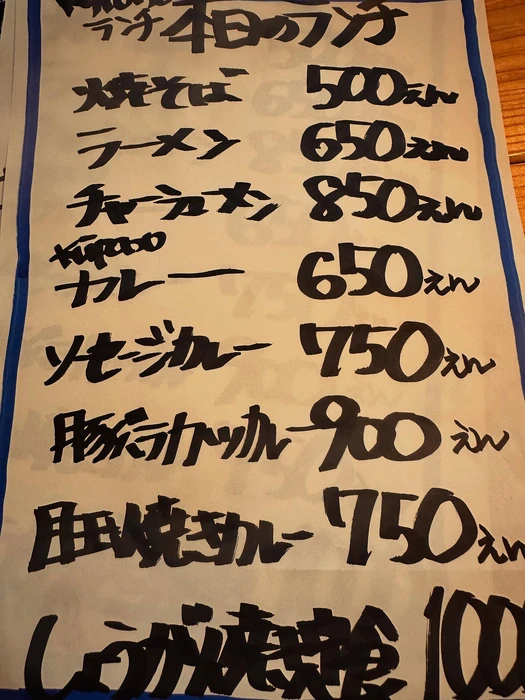 ランチ 本日のランチ
焼そば 500えん
ラーメン 650えん
チャーシューメン 850えん
カレー 650えん
ソーセージカレー 750えん
豚バラカツカレー 900えん
月玉焼きカレー 750えん
しょうが焼定食 100